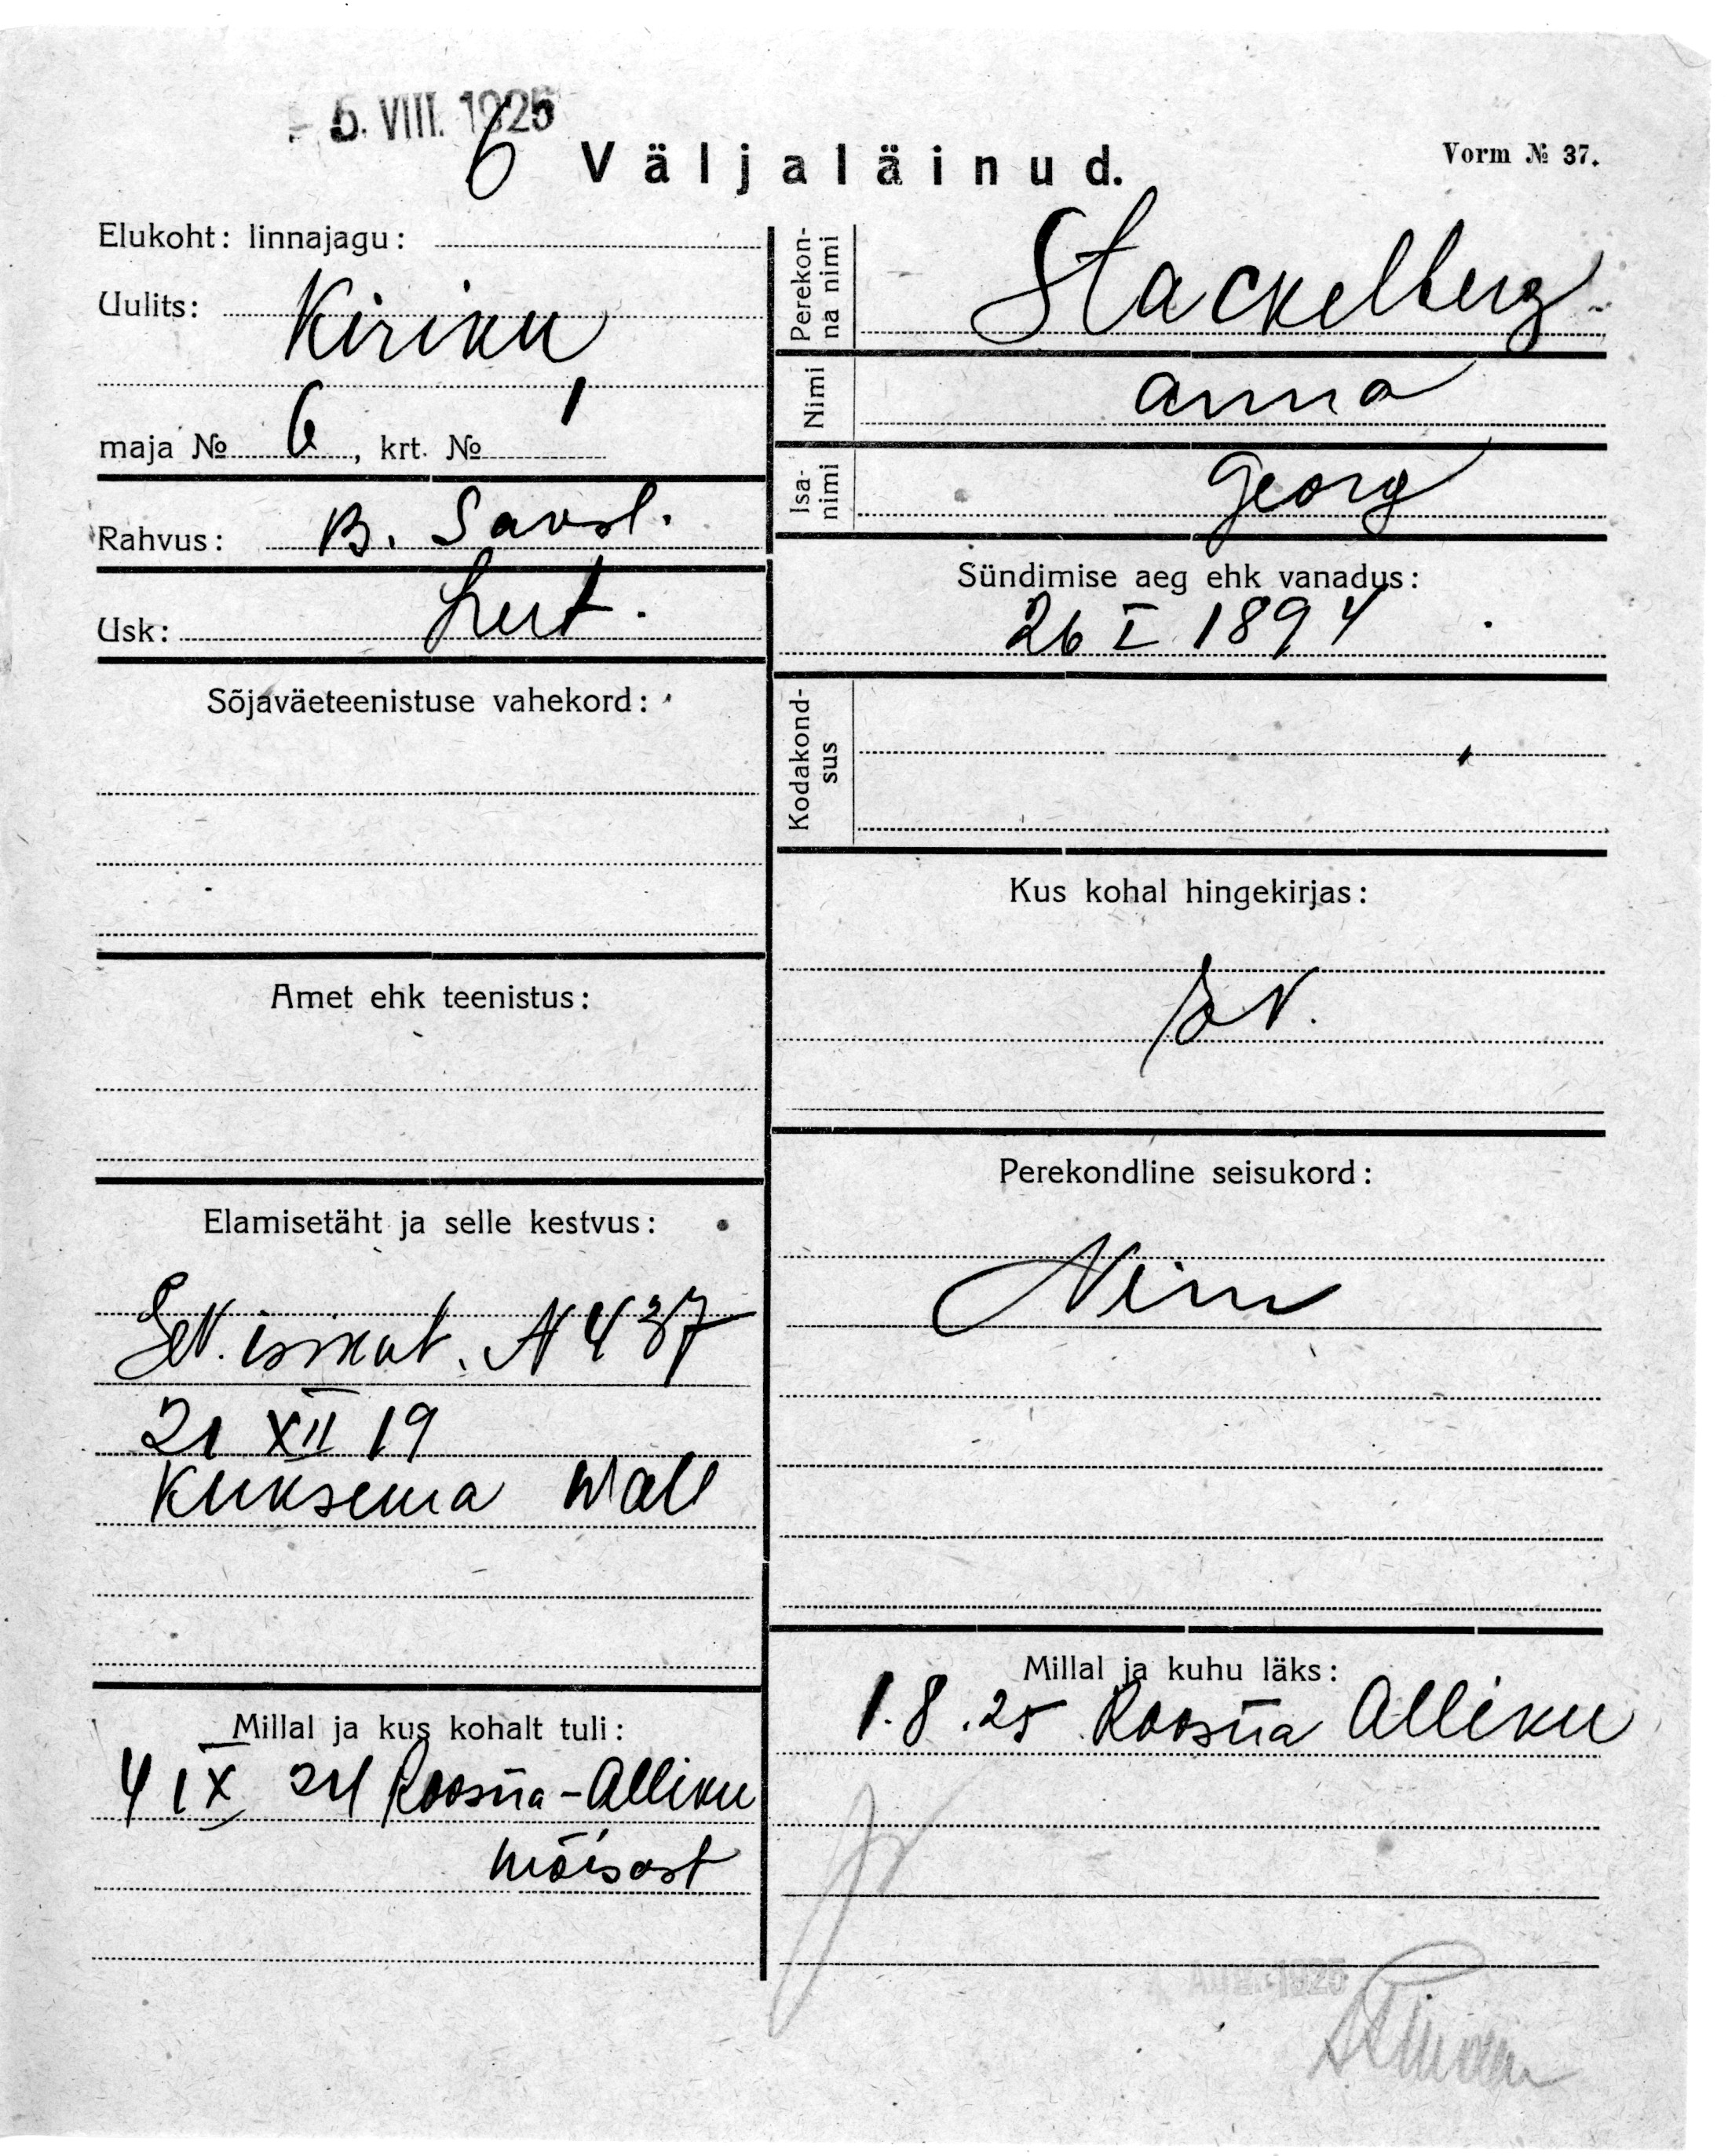 5. VIII. 1925
6
Väljaläinud.
Vorm № 37.
Elukoht: linnajagu:
Uulits: Kiriku
maja № 6, krt. № 1
Rahvus: B. Saksl.
Usk: Lut.
Sõjaväeteenistuse vahekord:
Amet ehk teenistus:
Elamisetäht ja selle kestvus:
isikut. N 437
21 XII 19
Kuksema Wall
Millal ja kus kohalt tuli:
4 IX 24 Roosna-Alliku
mõisast
Perekonna nimi
Stackelberg
Nimi
Anna
Isanimi
Georg
Sündimise aeg ehk vanadus:
26 I 1894
Kodakondsus
Kus kohal hingekirjas:
Perekondline seisukord:
Millal ja kuhu läks:
1.8.25 Roosna Alliku